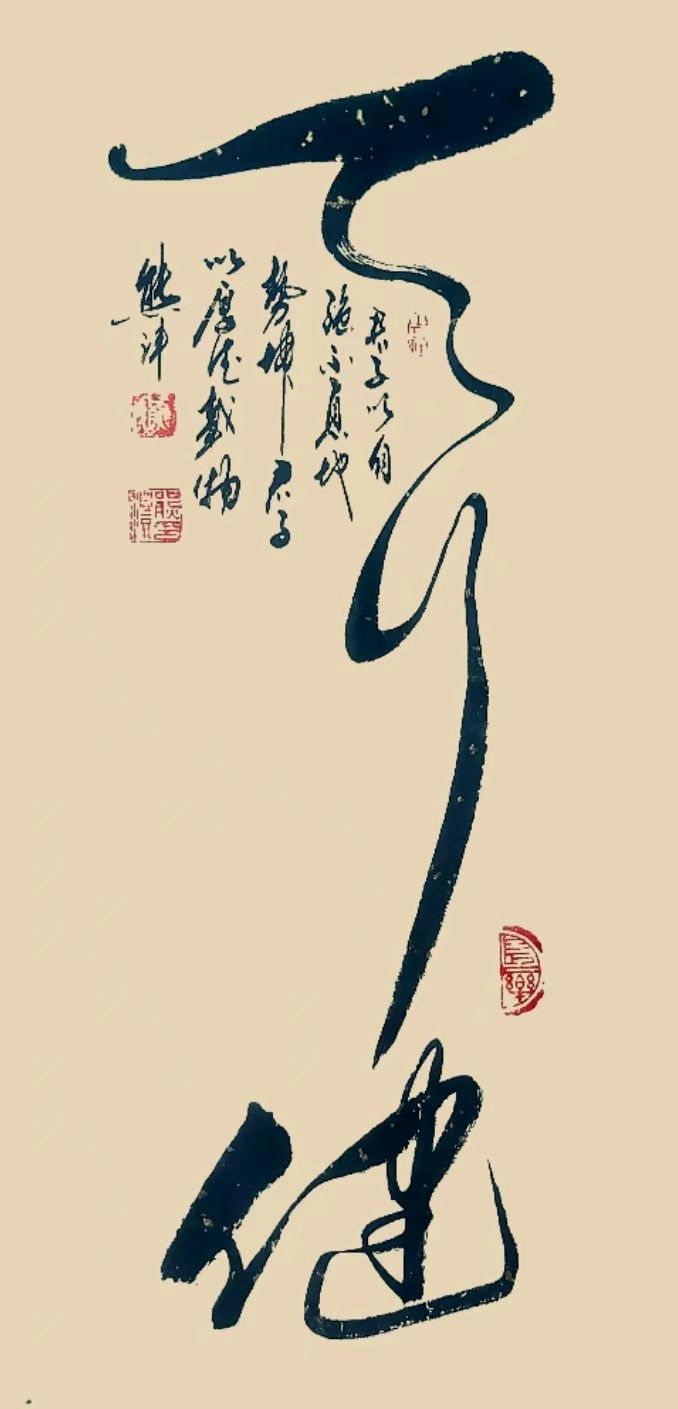 天行健
君子以自
强不息地
势坤君子
以厚德载物
熊沣
長樂